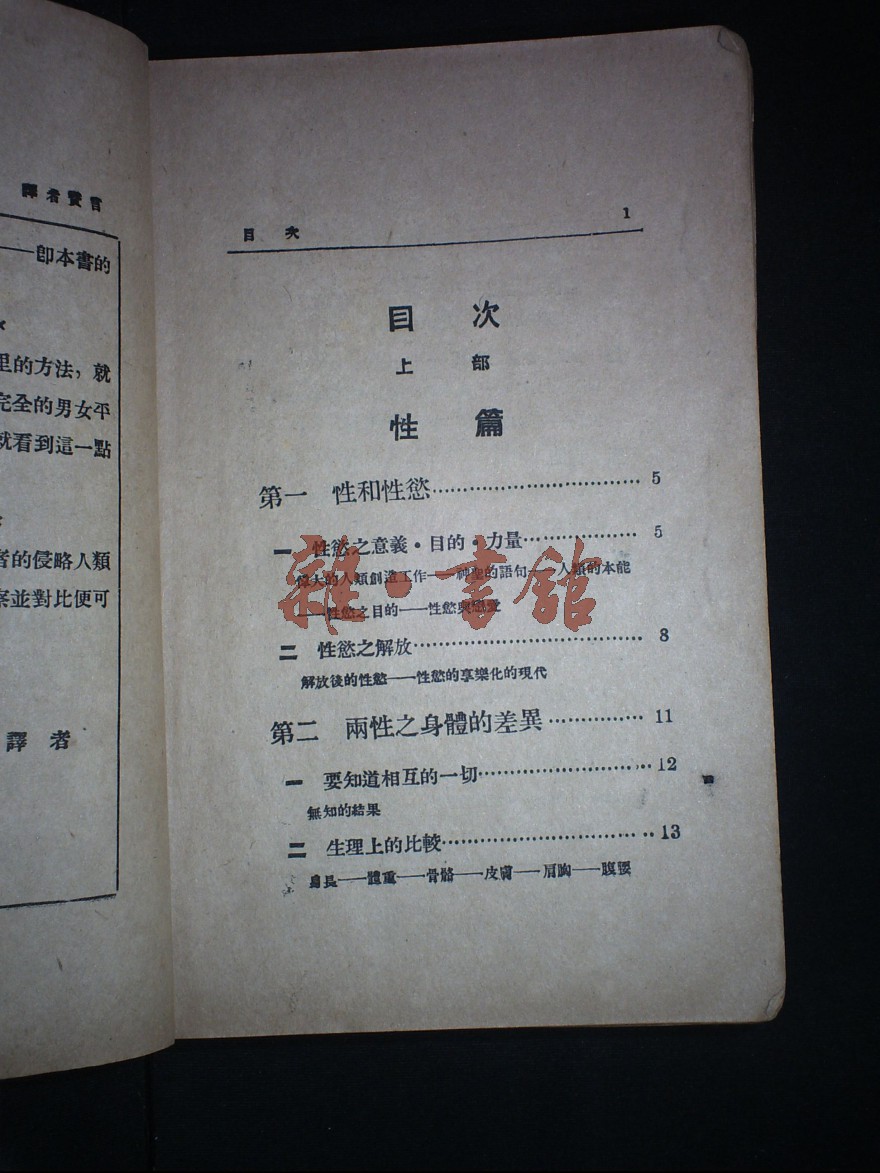 譯者贅言
——卽本書的
里的方法，就
完全的男女平
就看到這一點
者的侵略人類
察並對比便可
譯者
目次 1
目次
上部
性篇
第一 性和性慾 5
一 性慾之意義·目的·力量 5
偉大的人類創造工作——神聖的語句——人類的本能
——性慾之目的——性慾與戀愛
二 性慾之解放 8
解放後的性慾——性慾的享樂化的現代
第二 兩性之身體的差異 11
一 要知道相互的一切 12
無知的結果
二 生理上的比較 13
身長——體重——骨骼——皮膚——肩胸——腹腰
雜·書館